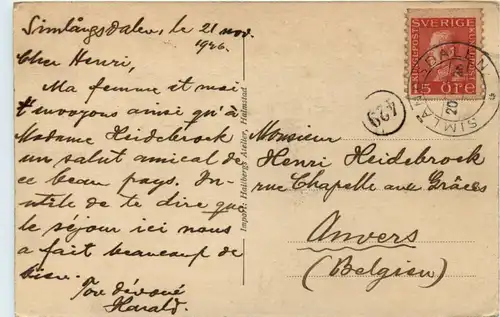 Simlångsdalen, le 21 nov.
1926.
Cher Henri,
Ma femme et moi
t'envoyons ainsi qu'à
Madame Heidebrock
un salut amical de
ce beau pays. In-
utile de te dire que
le séjour ici nous
a fait beaucoup de
bien.
Ton dévoué
Harald.
Import: Hallbergs Atelier, Halmstad
SVERIGE
15 ÖRE
429
Monsieur
Henri Heidebrock
rue Chapelle aux Grâces
Anvers
(Belgien)